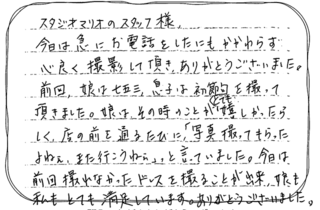 スタジオマリオのスタッフ様、
今日は急にお電話をしたにもかかわらず
心良く撮影して頂き、ありがとうございました。
前回、娘は七五三、息子は初節句を撮って
頂きました。娘は、その時のことがとても嬉しかったら
しく、店の前を通るたびに「写真撮ってもらった
よねぇ、また行こうねぇ。」と言っていました。今日は
前回撮れなかったドレスを撮ることが出来、娘も
私もとても満足しています。ありがとうございました。